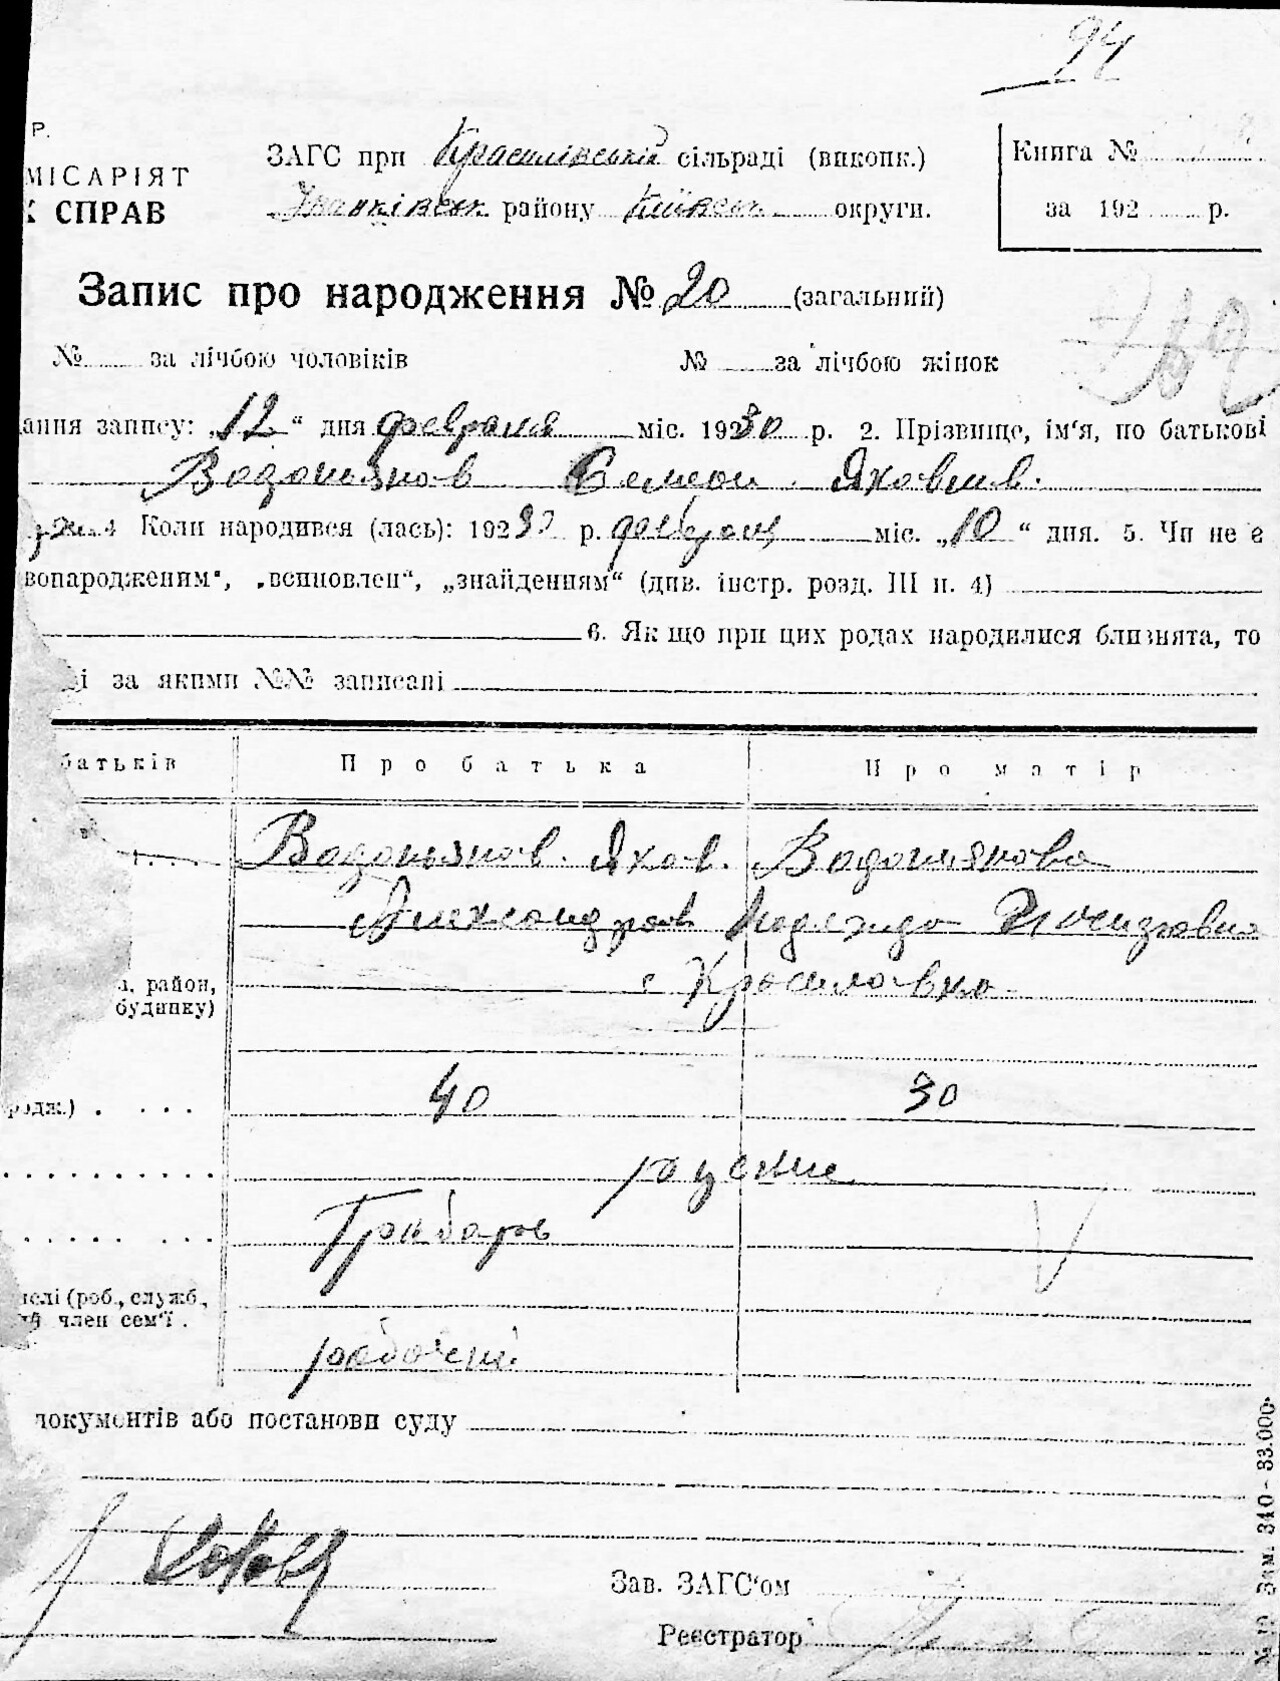 94
Р.
МІСАРІЯТ
СПРАВ
ЗАГС при Красилівській сільраді (виконк.)
Іванківськ району Київськ округи.
Книга №
за 192 р.
Запис про народження № 20 (загальний)
№ за лічбою чоловіків № за лічбою жінок
ання запису: „12“ дня февраля міс. 1930 р. 2. Прізвище, ім‘я, по батькові
Водопьянов Семеон Яковлив.
4 Коли народився (лась): 1930 р. міс. „10“ дня. 5. Чи не є
вопародженим“, „всиновлен“, „знайденням“ (див. інстр. розд. III п. 4)
6. Як що при цих родах народилися близнята, то
і за якими №№ записані
батьків Про батька Про матір
Водопьянов Яков. Водопиянова
Александров Надежда
с Красиловка
а, район,
будинку)
родж.) 40 30
руские
рабочий
ислі (роб., служб.,
член сем‘ї .
документів або постанови суду
Зав. ЗАГС‘ом
Реєстратор
№ 19 Зам. 340 - 33.000.